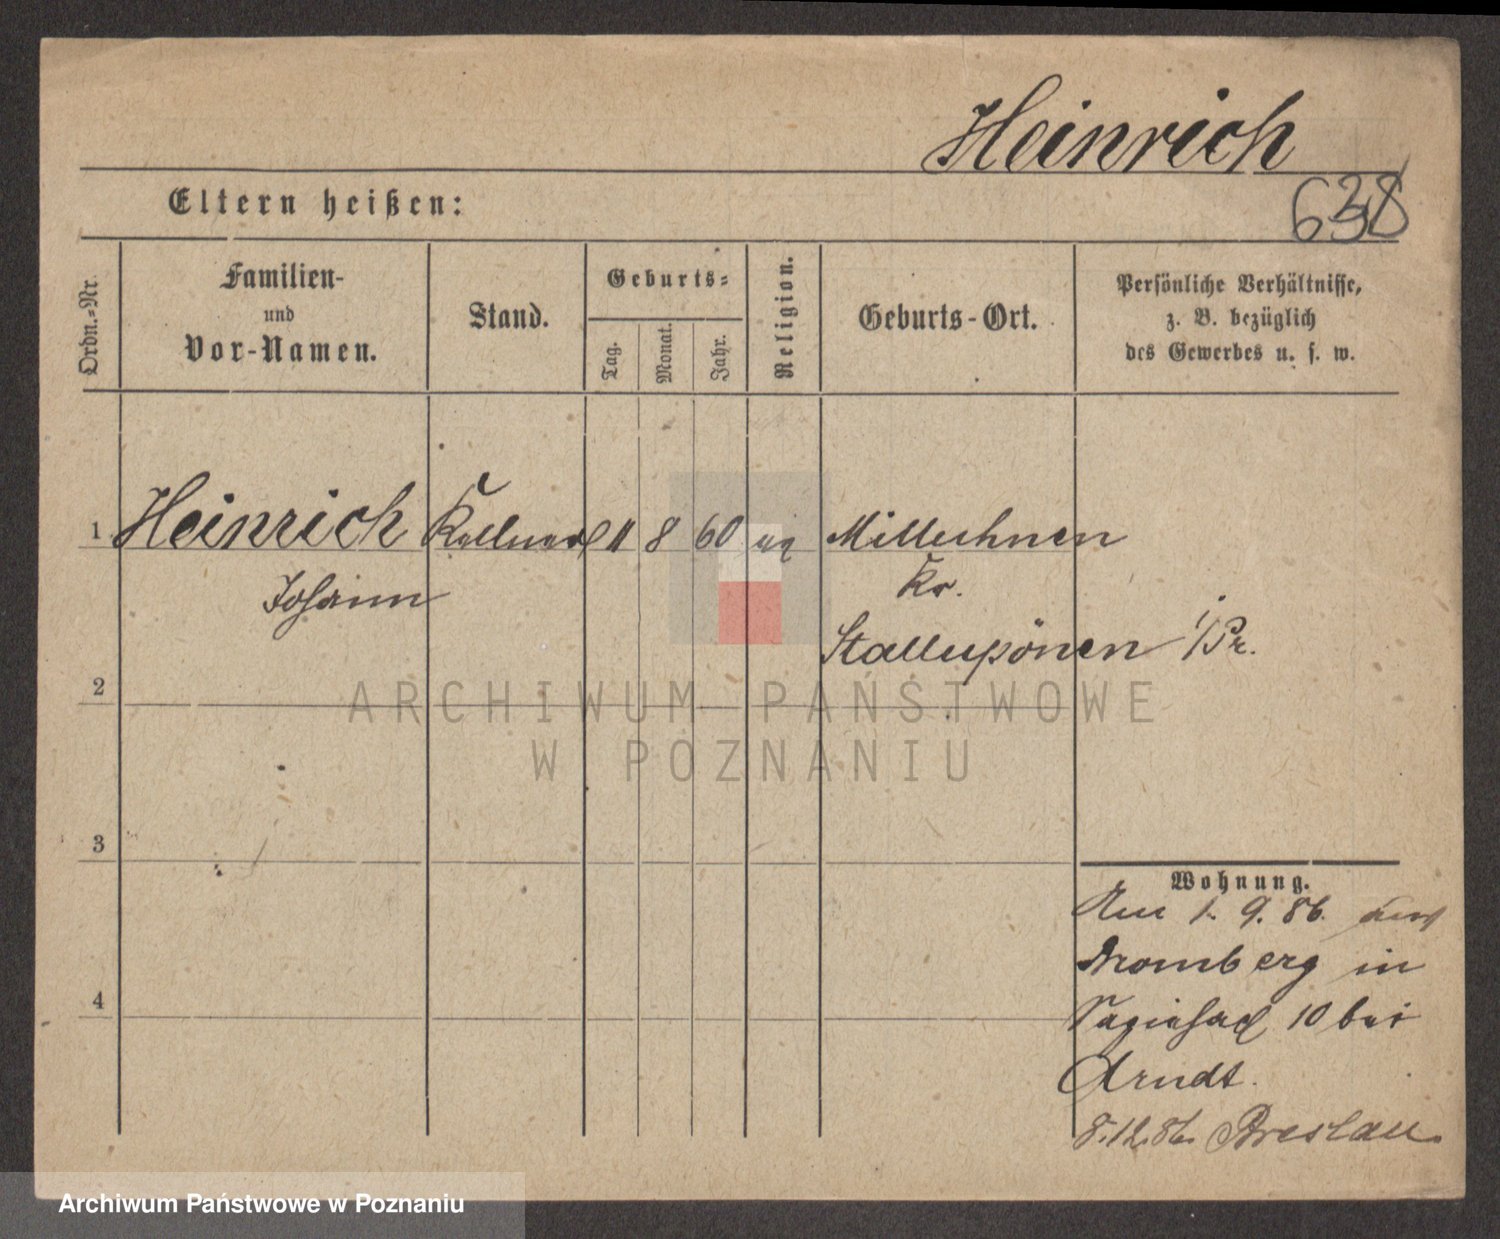 Heinrich
638
Eltern heißen:
Ordn.-Nr.
Familien-
und
Vor-Namen.
Stand.
Geburts-
Tag.
Monat.
Jahr.
Religion.
Geburts-Ort.
Persönliche Verhältnisse,
z. B. bezüglich
des Gewerbes u. s. w.
1 Heinrich 11 8 60 Milluhnen
Johann Kr.
Stallupönen i/Pr.
2
ARCHIWUM PAŃSTWOWE
W POZNANIU
3
4
Wohnung.
1. 9. 86.
Bromberg in
10 bei
Arndt.
8.12.86. Breslau.
Archiwum Państwowe w Poznaniu